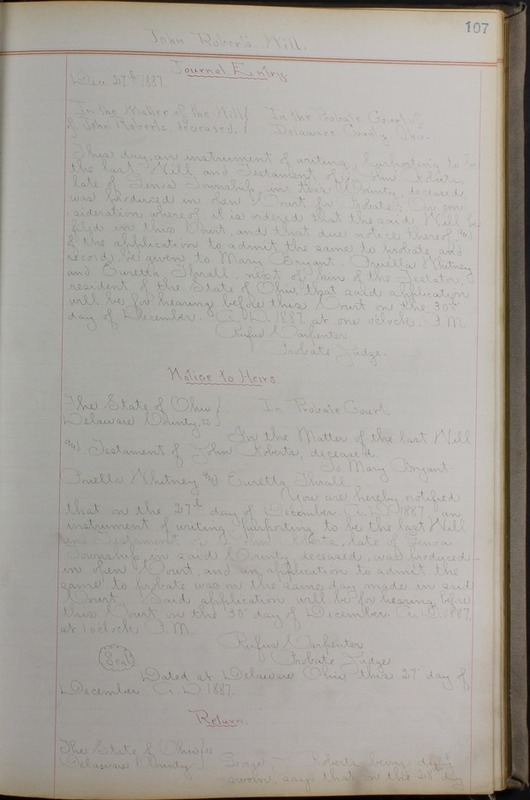 107
John Robert's Will.
Journal Entry
Dec 27th 1887.
In the Matter of the Will } In the Probate Court of
of John Roberts, deceased. } Delaware County, Ohio.
This day, an instrument of writing, purporting to be
the last Will and Testament of John Roberts,
late of Genoa Township, in this County, deceased
was produced in open Court for Probate. On con-
sideration whereof, it is ordered that the said Will be
filed in this Court, and that due notice thereof &
of the application to admit the same to probate and
record, be given to Mary Bryant, Whitney
and Euretta Thrall, next of kin of the Testator,
resident of the State of Ohio, that said application
will be for hearing before this Court on the 30th
day of December A.D. 1887, at one o'clock P.M.
Rufus Carpenter
Probate Judge.
Notice to Heirs
The State of Ohio } In Probate Court
Delaware County, ss }
In the Matter of the last Will
& Testament of John Roberts, deceased.
To Mary Bryant
Whitney & Euretta Thrall
You are hereby notified
that on the 27th day of December A.D. 1887, an
instrument of writing purporting to be the last Will
and Testament of Roberts, late of Genoa
Township, in said County, deceased, was produced
in open Court, and an application to admit the
same to probate was on the same day made in said
Court. Said application will be for hearing before
this Court on the 30th day of December A.D. 1887,
at 1 o'clock P.M.
Rufus Carpenter
Probate Judge
Seal
Dated at Delaware Ohio this 27th day of
December A.D. 1887.
Return.
The State of Ohio } ss
Delaware County } George Roberts being duly
sworn, says that on the 28th day